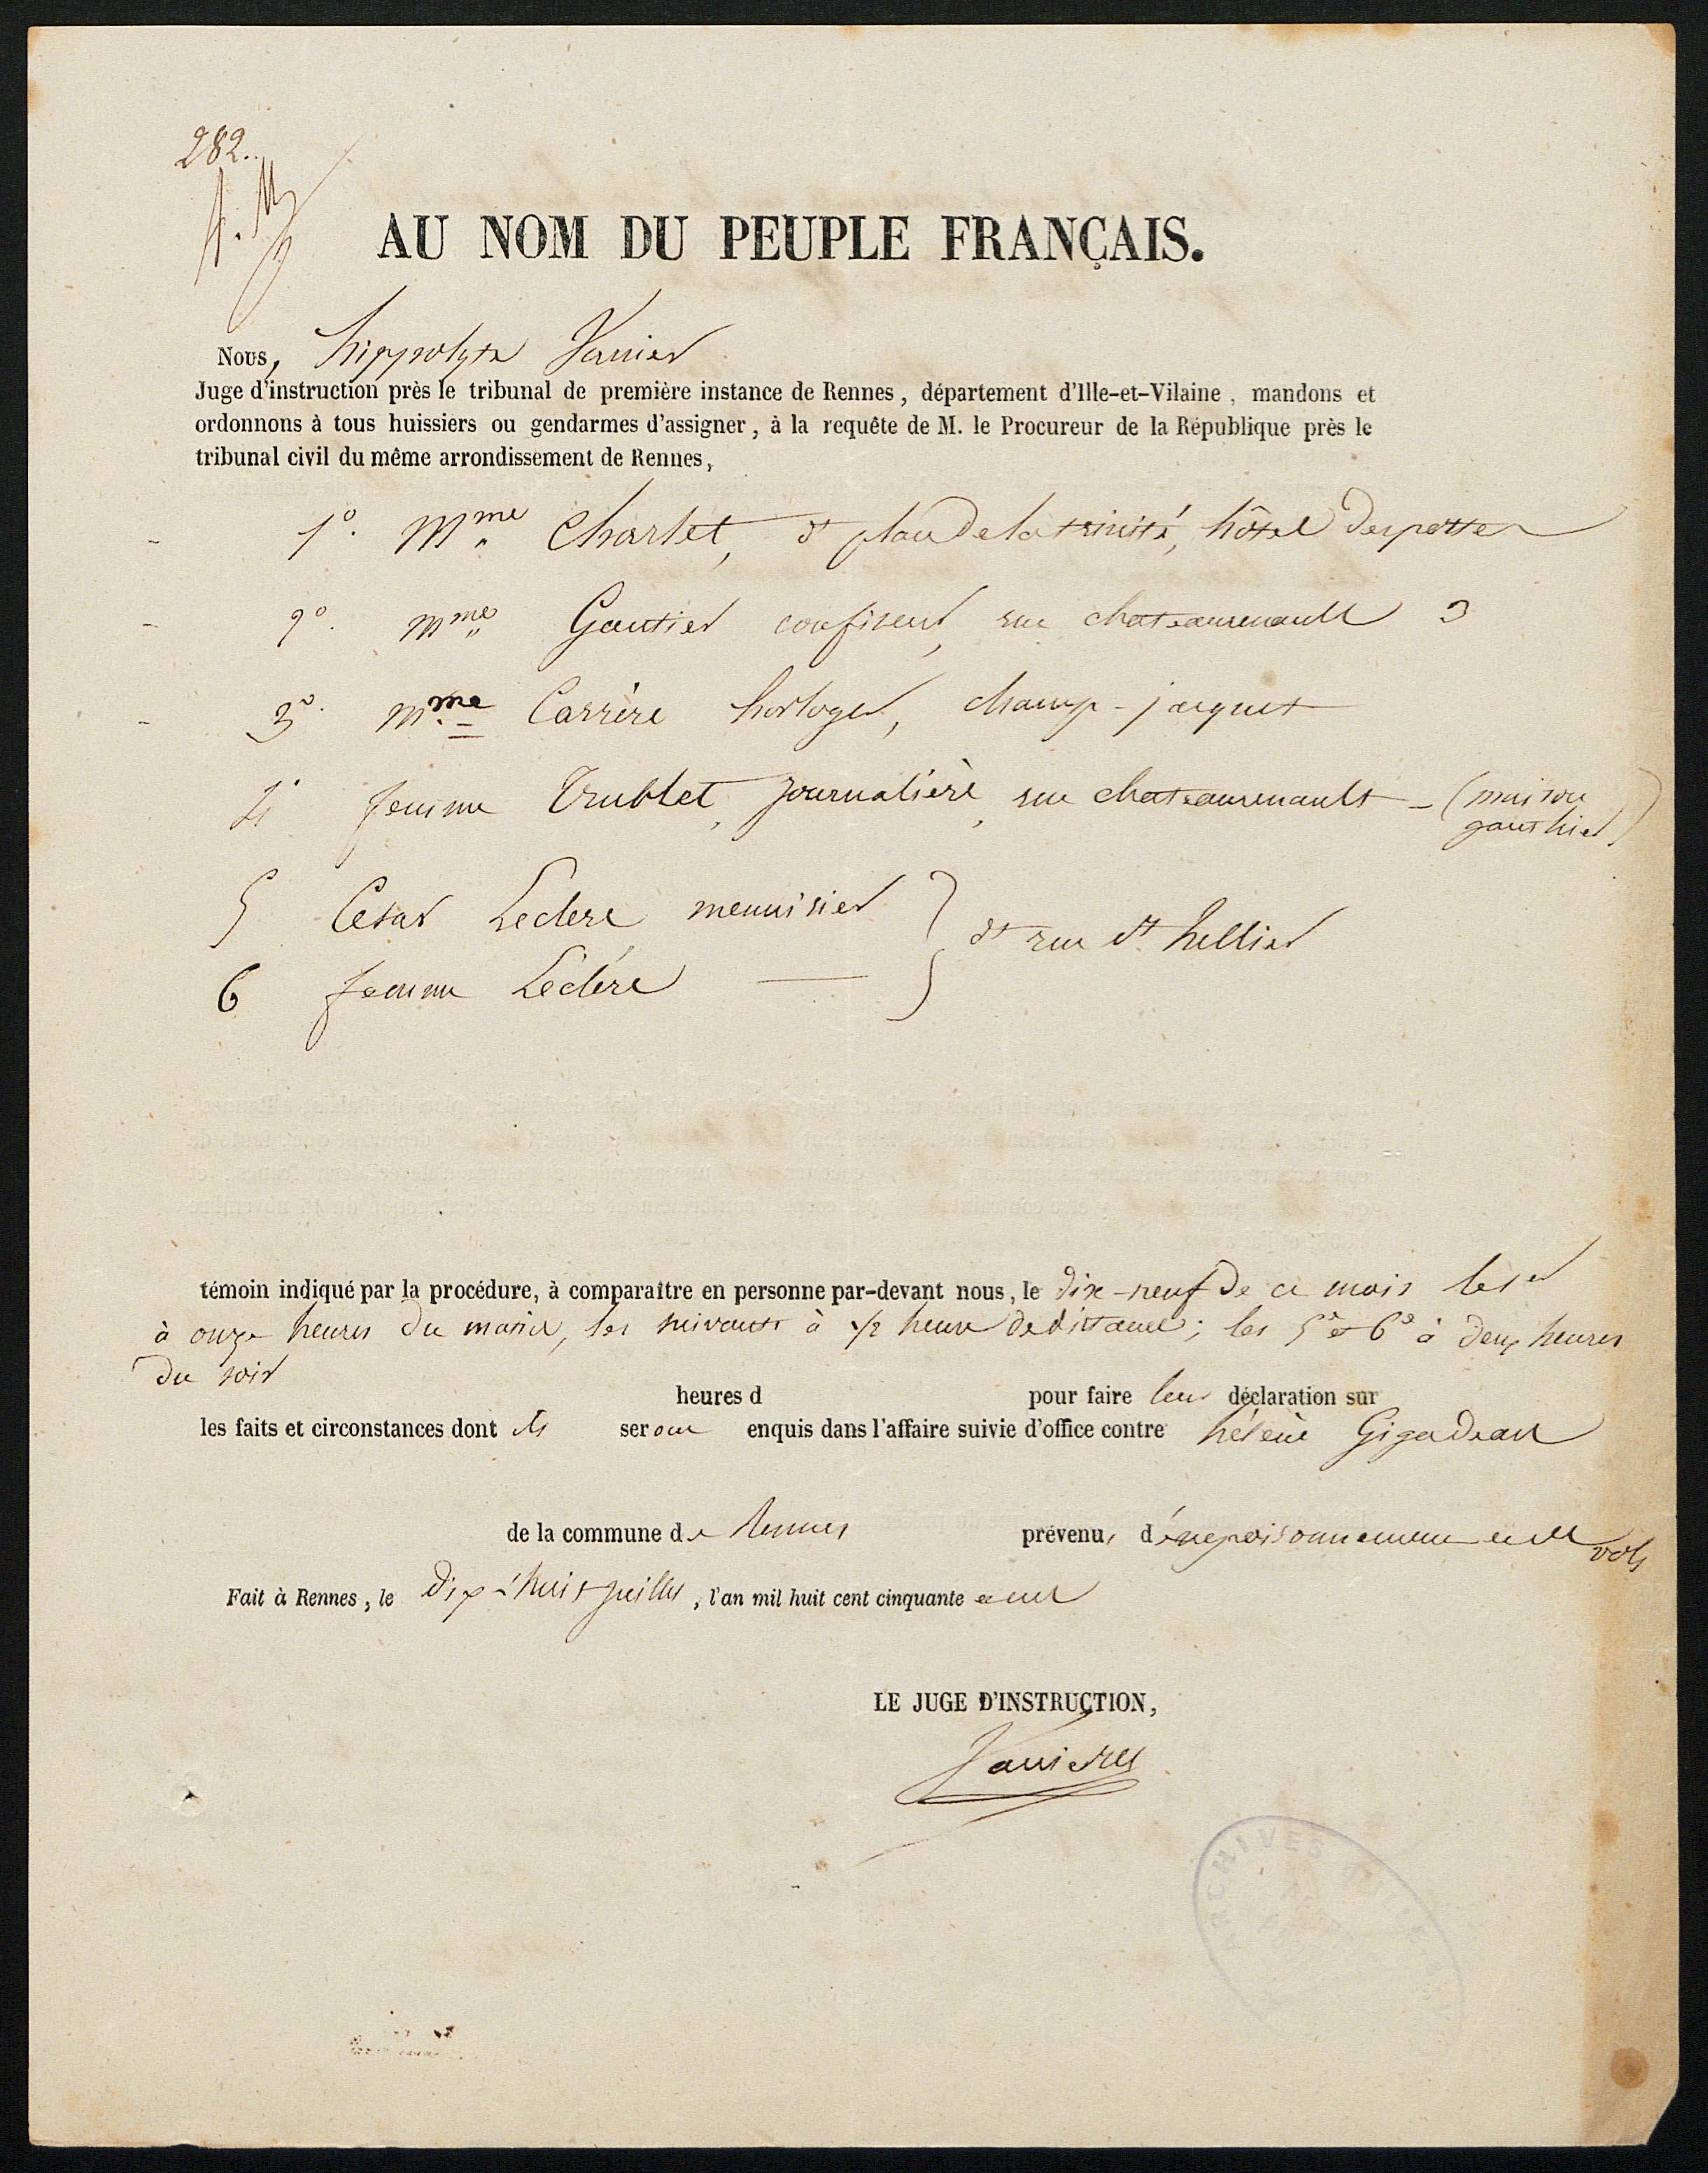 282.
AU NOM DU PEUPLE FRANÇAIS.
Nous, hippolyte Vannier
Juge d'instruction près le tribunal de première instance de Rennes, département d'Ille-et-Vilaine, mandons et
ordonnons à tous huissiers ou gendarmes d'assigner, à la requête de M. le Procureur de la République près le
tribunal civil du même arrondissement de Rennes,
1° Mme Charlet, dt place de la trinité, hôtel des postes
2° mme Gautier confiseur, rue chateaurenault 3
3° mme Carrère horloger, champ-jacquet
4° femme Trublet, journalière, rue chateaurenault - (maison
gauthier)
5 César Leclerc menuisier } dt rue st hellier
6 femme Leclerc
témoin indiqué par la procédure, à comparaître en personne par-devant nous, le dix-neuf de ce mois le 1er
à onze heures du matin, les suivants à 1/2 heure de distance; les 5° et 6° à deux heures
du soir
heures d pour faire leur déclaration sur
les faits et circonstances dont ils seront enquis dans l'affaire suivie d'office contre hélène Gigadeau
de la commune de Rennes prévenu, d'empoisonnement et de vols
Fait à Rennes, le dix-huit juillet, l'an mil huit cent cinquante et un
LE JUGE D'INSTRUCTION,
Vannier
ARCHIVES